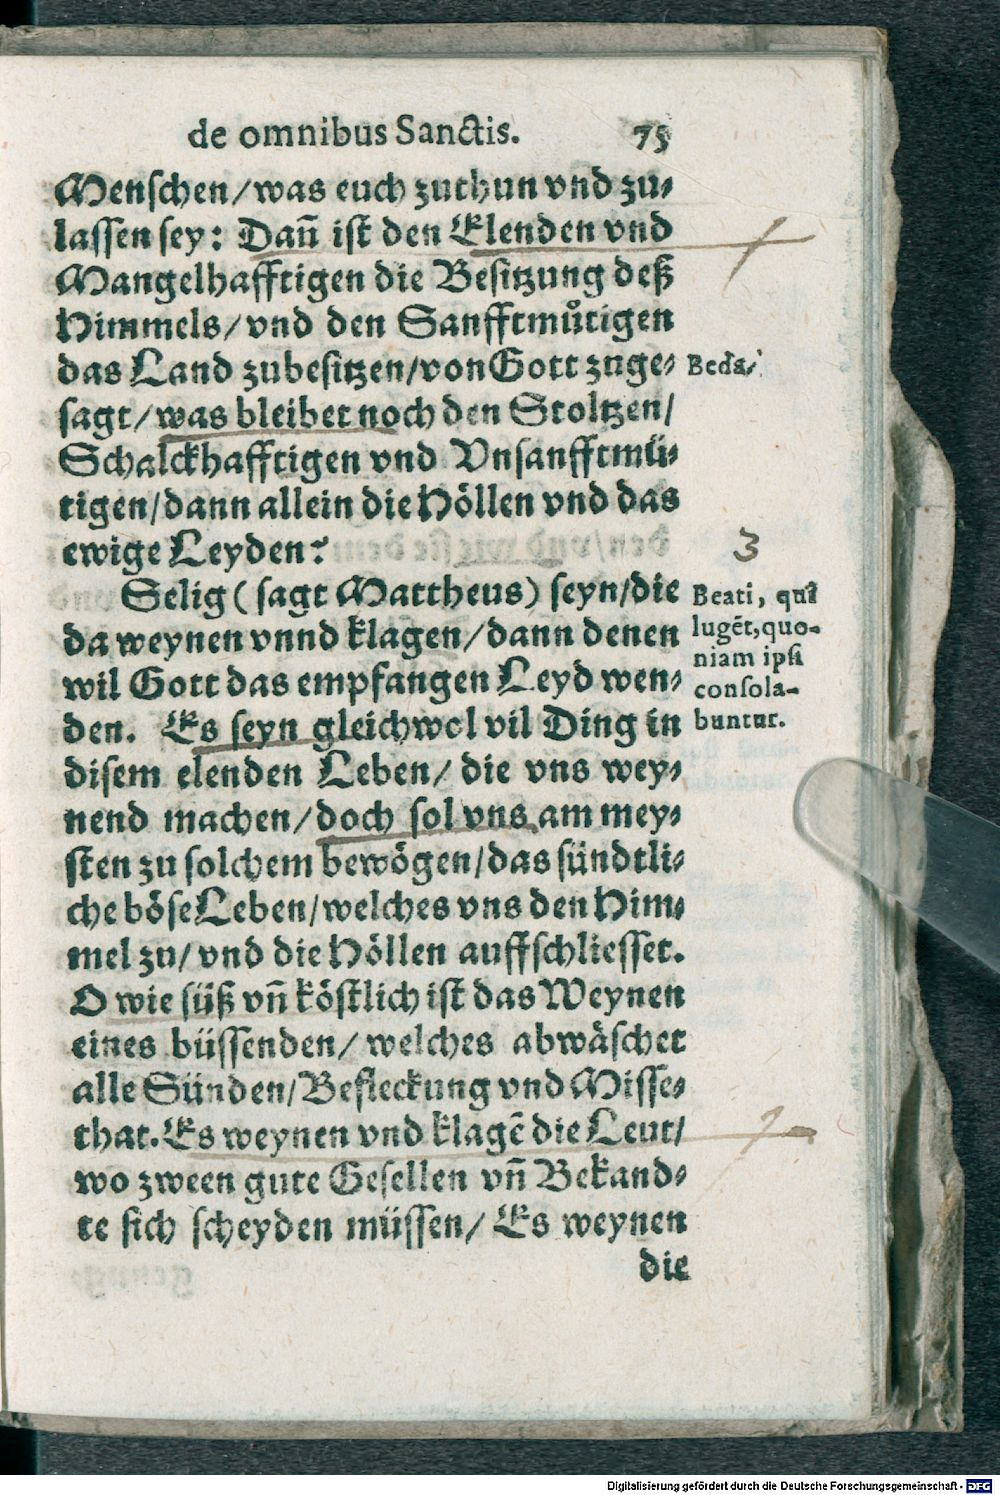 de omnibus Sanctis. 75
Menschen/was euch zuthun vnd zu⸗
lassen sey: Dañ ist den Elenden vnd
Mangelhafftigen die Besitzung deß
Himmels/vnd den Sanfftmuͤtigen
das Land zubesitzen/von Gott zuge⸗
Beda/
sagt/was bleibet noch den Stoltzen/
Schalckhafftigen vnd Vnsanfftmü⸗
tigen/dann allein die Höllen vnd das
ewige Leyden?
3
Selig (sagt Mattheus) seyn/die
da weynen vnnd klagen/dann denen
wil Gott das empfangen Leyd wen⸗
den. Es seyn gleichwol vil Ding in
disem elenden Leben/ die vns wey⸗
nend machen/doch sol vns am mey⸗
sten zu solchem bewögen/das sündtli⸗
che böse Leben/welches vns den Him⸗
mel zu/ vnd die Höllen auffschliesset.
O wie süß vñ köstlich ist das Weynen
eines büssenden/ welches abwäschet
alle Sünden/Befleckung vnd Misse⸗
that. Es weynen vnd klagẽ die Leut/
wo zween gute Gesellen vñ Bekand⸗
te sich scheyden müssen/ Es weynen
die
Beati, qui
lugẽt, quo-
niam ipsi
consola-
buntur.
Digitalisierung gefördert durch die Deutsche Forschungsgemeinschaft - DFG